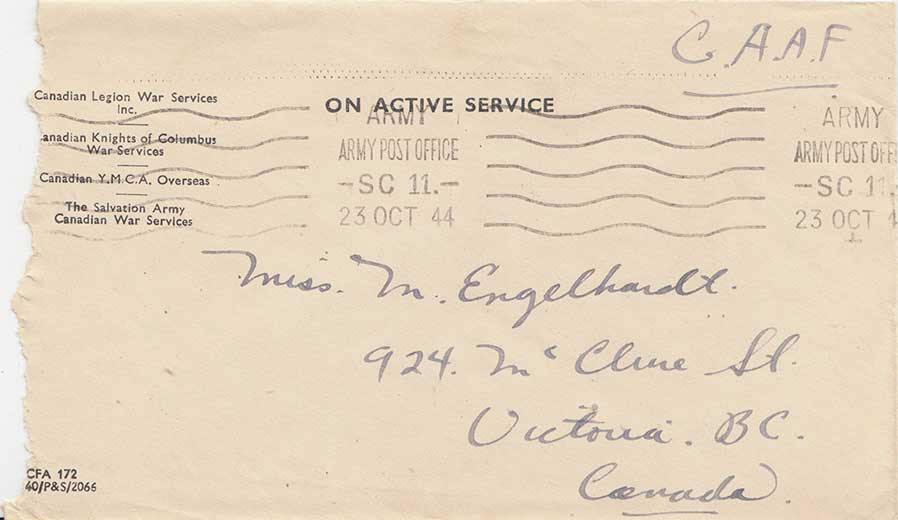 C.A.A.F
Canadian Legion War Services
Inc.
anadian Knights of Columbus
War Services
Canadian Y.M.C.A. Overseas
The Salvation Army
Canadian War Services
ON ACTIVE SERVICE
ARMY
ARMY POST OFFICE
-SC 11.-
23 OCT 44
ARMY
ARMY POST OFF
-SC 11.
23 OCT 4
Miss. M. Engelhardt.
924. Mc Clure St.
Victoria. BC.
Canada.
CFA 172
40/P&S/2066